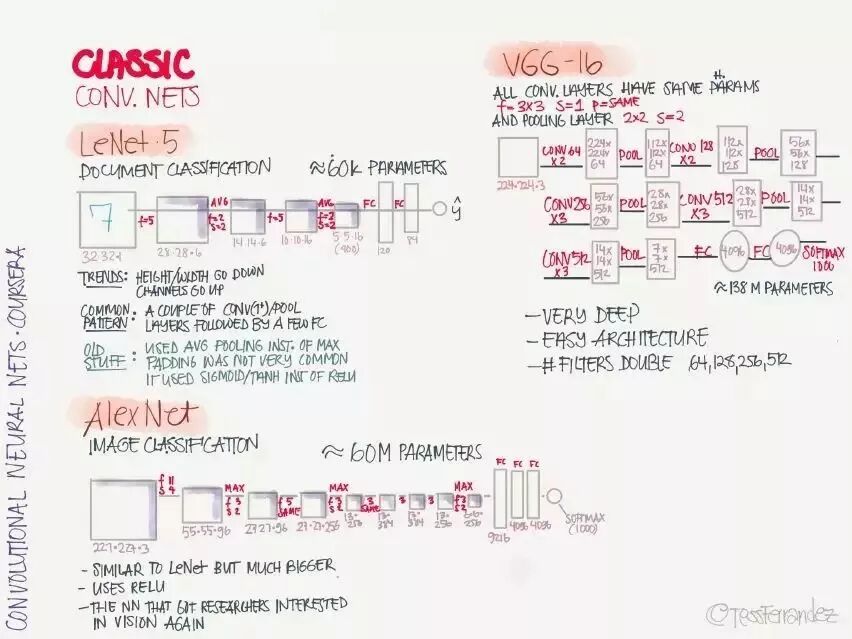 CLASSIC
CONV. NETS
LeNet-5
DOCUMENT CLASSIFICATION
≈60K PARAMETERS
7
f=5
AVG
f=2
S=2
f=5
AVG
f=2
S=2
FC
FC
ŷ
32·32·1
28·28·6
14·14·6
10·10·16
5·5·16
(400)
120
84
TRENDS: HEIGHT/WIDTH GO DOWN
CHANNELS GO UP
COMMON PATTERN: A COUPLE OF CONV(1+)/POOL
LAYERS FOLLOWED BY A FEW FC
OLD STUFF: USED AVG POOLING INST. OF MAX
PADDING WAS NOT VERY COMMON
IT USED SIGMOID/TANH INST OF RELU
AlexNet
IMAGE CLASSIFICATION
≈ 60M PARAMETERS
f 11
S 4
MAX
f 3
S 2
f 5
SAME
MAX
f 3
S 2
3
SAME
3
3
MAX
f 3
S 2
FC
FC
FC
227·227·3
55·55·96
27·27·96
27·27·256
13·
256
13·
384
13·
384
13·
256
6·6·
256
9216
4096
4096
SOFTMAX
(1000)
- SIMILAR TO LeNet BUT MUCH BIGGER
- USES RELU
- THE NN THAT GOT RESEARCHERS INTERESTED
IN VISION AGAIN
VGG-16
ALL CONV. LAYERS HAVE SAME H. PARAMS
f=3×3 S=1 P=SAME
AND POOLING LAYER 2×2 S=2
224·224·3
CONV 64
×2
224×
224×
64
POOL
112×
112×
64
CONV 128
×2
112×
112×
128
POOL
56×
56×
128
CONV 256
×3
56×
56×
256
POOL
28×
28×
256
CONV 512
×3
28×
28×
512
POOL
14×
14×
512
CONV 512
×3
14×
14×
512
POOL
7×
7×
512
FC
4096
FC
4096
SOFTMAX
1000
≈138 M PARAMETERS
- VERY DEEP
- EASY ARCHITECTURE
- # FILTERS DOUBLE 64,128,256,512
CONVOLUTIONAL NEURAL NETS · COURSERA
©TessFerrandez